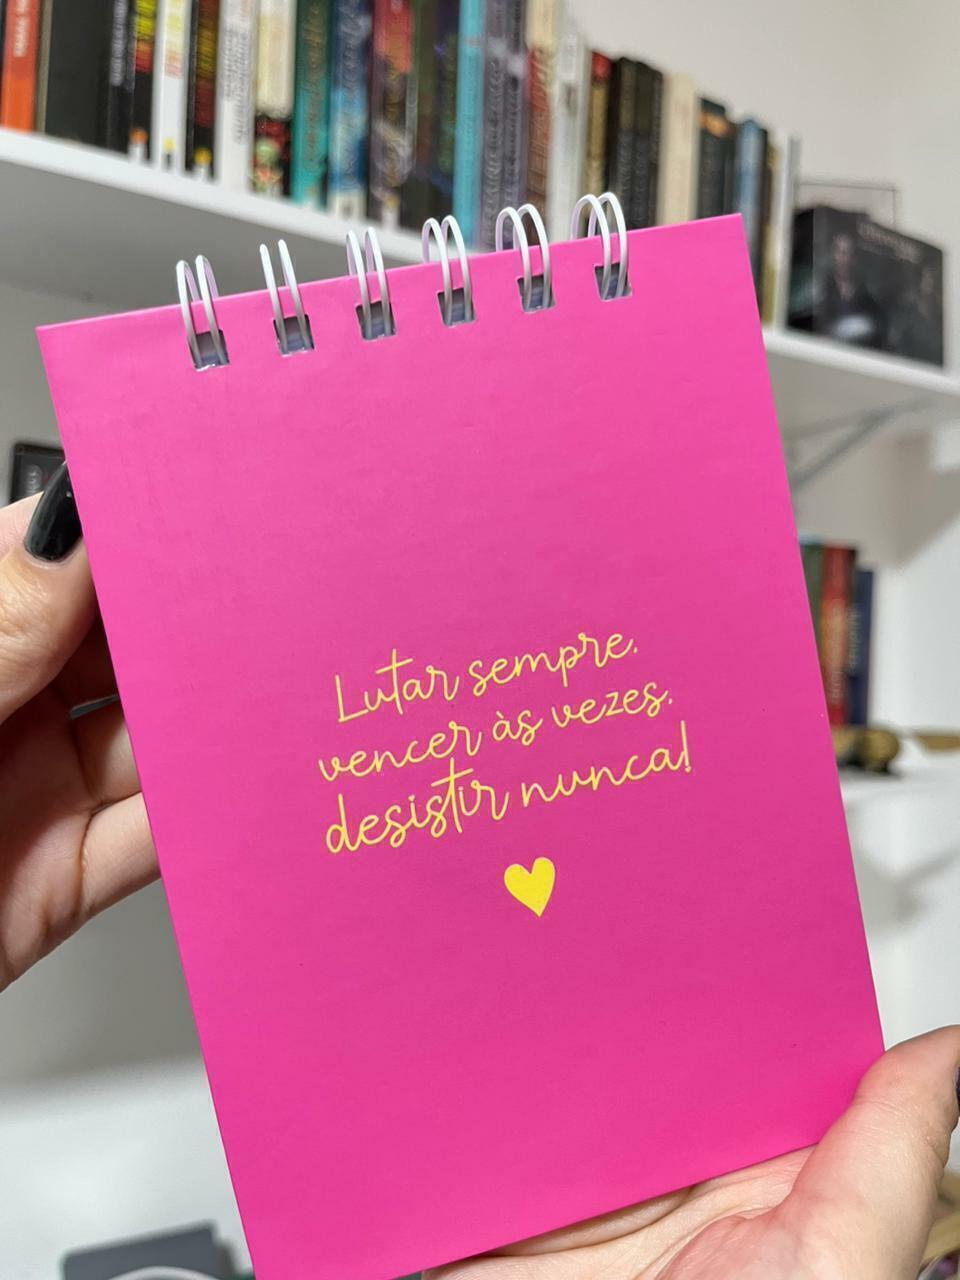 Lutar sempre.
vencer às vezes.
desistir nunca!